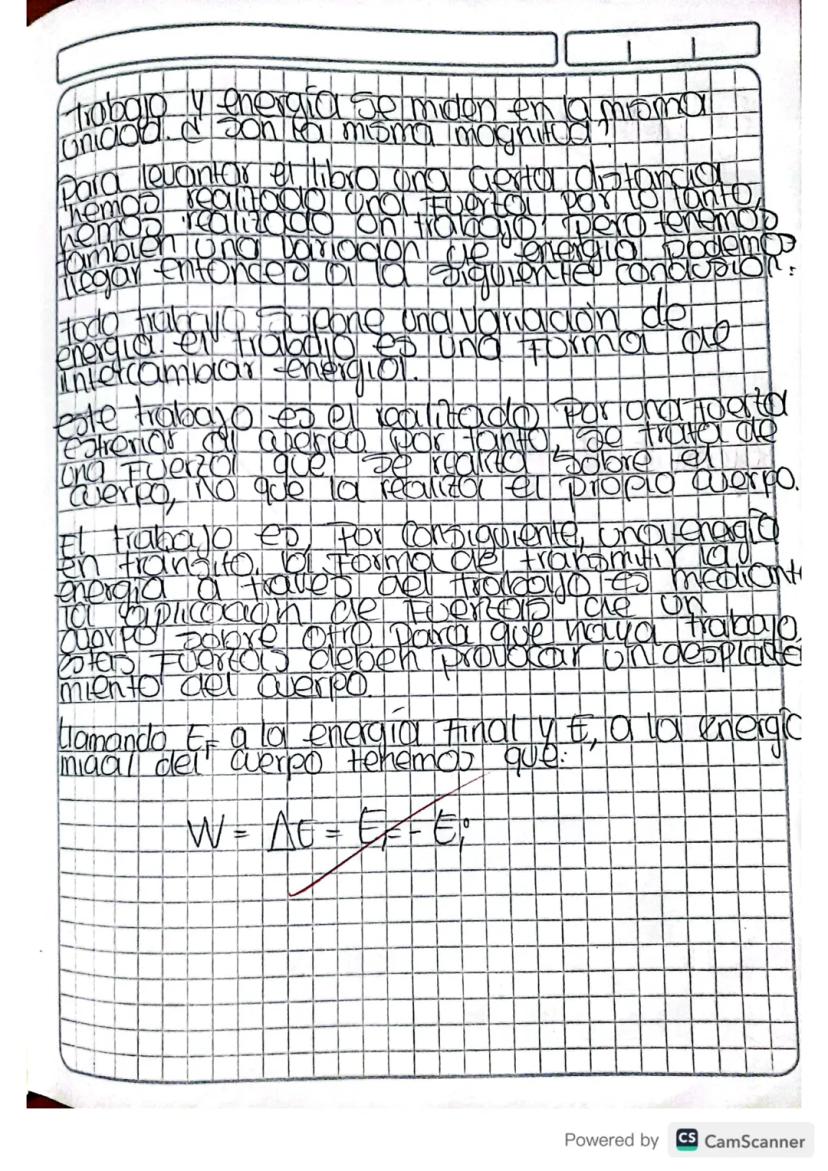 trabajo y energía se miden en la misma
unidad. ¿ son la misma magnitud?
Para levantar el libro una cierta distancia
hemos realitado una fuerta, por lo tanto,
hemos realizado un trabajo, pero tenemos
tambien una variación de energia podemos
llegar entonces a la siguiente conclusion:
todo trabajo supone una variación de
energia. el trabajo es una forma de
intercambiar energia.
este trabajo es el realitado por una fuerta
exterior al cuerpo, por tanto, se trata de
una fuerza que se realiza sobre el
cuerpo, no que la realiza el propio cuerpo.
El trabajo es, por consiguiente, una energía
en transito. la forma de transmitir la
energia a traves del trabajo es mediante
la aplicación de fuerzas de un
cuerpo sobre otro para que haya trabajo,
estas fuertas deben provocar un desplate
miento del cuerpo.
llamando EF a la energía final y E, a la energic
inicial del cuerpo tenemos que:
W = ΔE = EF - Ei
Powered by CS CamScanner